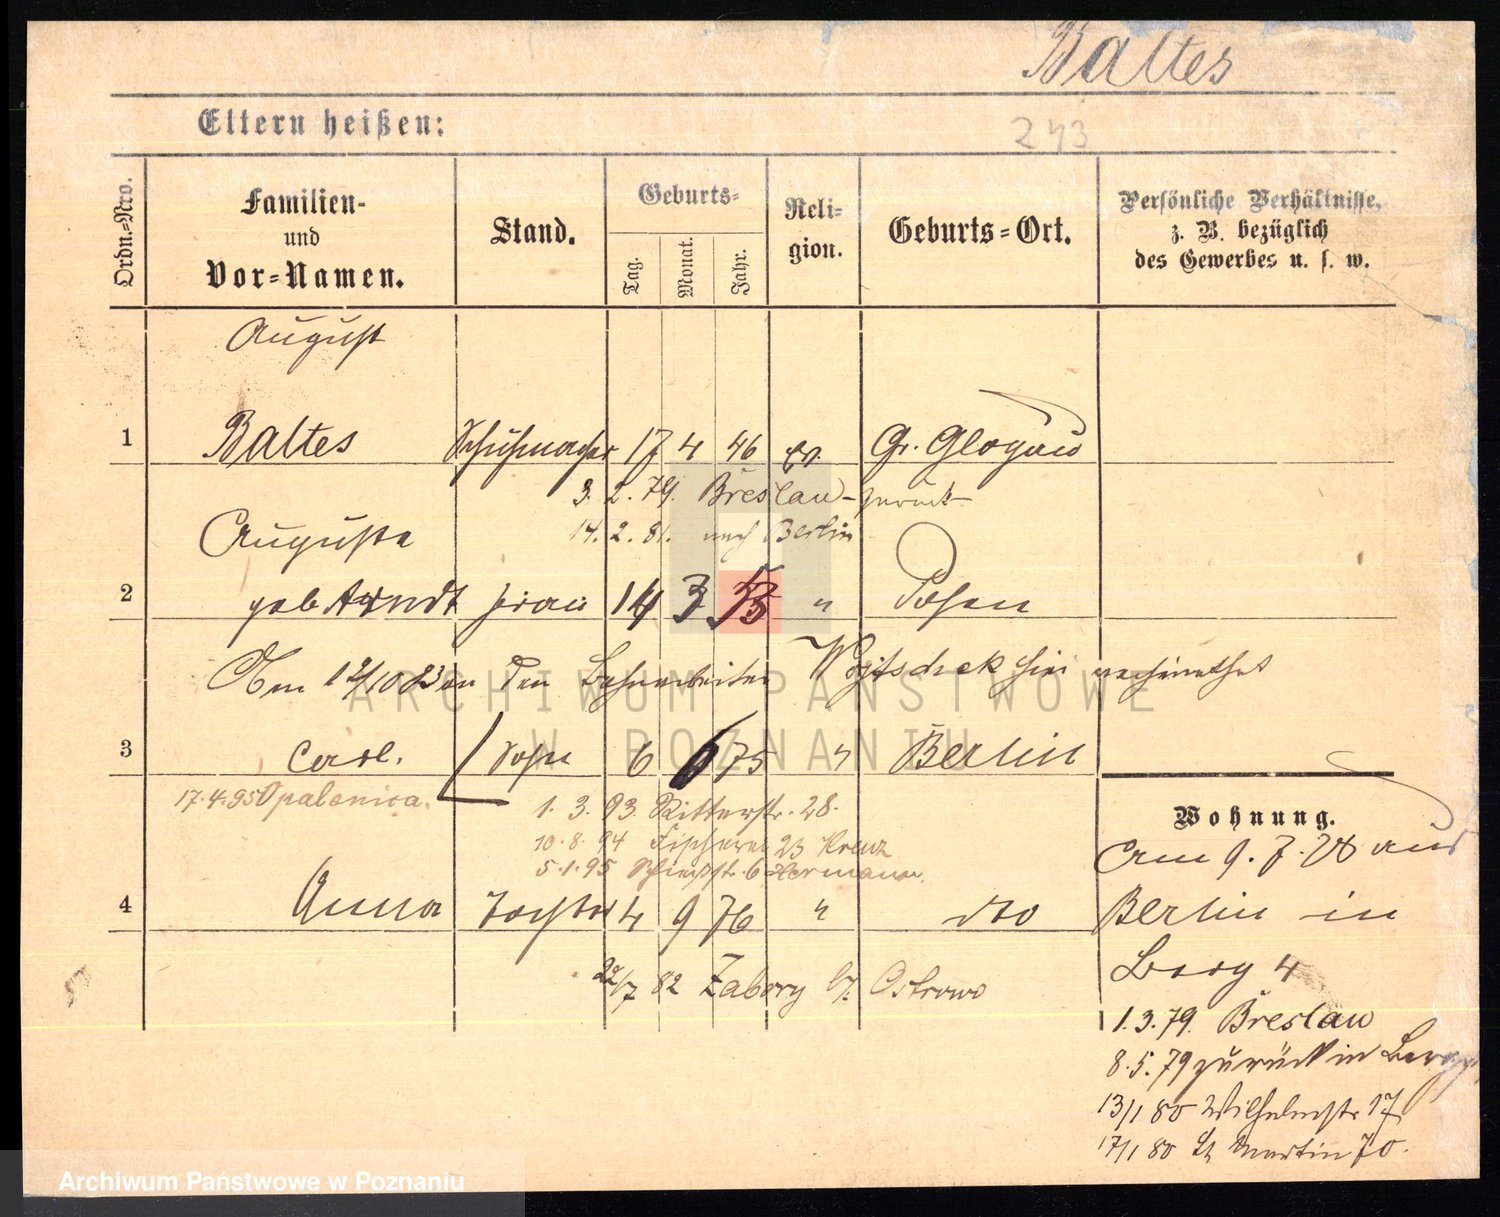 Baltes
Eltern heißen:
243
Ordn.-Nro.
Familien-
und
Vor-Namen.
Stand.
Geburts-
Tag.
Monat.
Jahr.
Reli-
gion.
Geburts-Ort.
Persönliche Verhältnisse,
z. B. bezüglich
des Gewerbes u. s. w.
August
1 Baltes Schuhmacher 17 4 46 ev. Gr. Glogau
3. 2. 79. Breslau - zurück
14. 2. 81. nach Berlin
Auguste
2 geb Arndt Frau 14 3 53 " Posen
Am 12/10 83 an den Bahnarbeiter hier verheirathet
3 Carl. Sohn 6 6 75 " Berlin
17.4.95 Opalenica.
1. 3. 93. Ritterstr. 28.
10. 8. 94 Fischerei 23 Kreuz
5. 1. 95 Schießstr. 6 Hermann
4 Anna Tochter 4 9 76 " dto
22/7 82 Zabory b/. Ostrowo
Wohnung.
Am 9. 7. 78 aus
Berlin in
Berg 4
1. 3. 79. Breslau
8. 5. 79 zurück in Berg
13/1 80 Wilhelmstr 17
17/1 80 St Martin 70.
ARCHIWUM PAŃSTWOWE
W POZNANIU
Archiwum Państwowe w Poznaniu